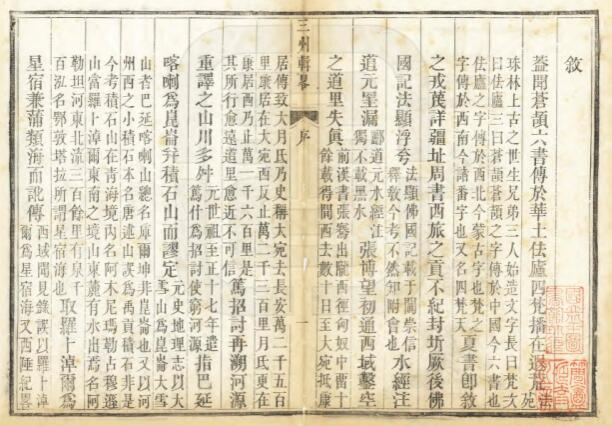 敘
蓋聞蒼頡六書傳於華土佉廬四梵播在遐荒法苑
珠林上古之世生兄弟三人始造文字長曰梵次
曰佉廬三曰蒼頡蒼頡之字傳於中國今六書也
佉廬之字傳於西北今蒙古字也梵之
字傳於西南今諸番字也又名四梵天夏書即敘
之戎蔑詳疆址周書西旅之貢不紀封圻厥後佛
國記法顯浮夸法顯佛國記載于闐崇信釋教今考不然知附會也水經注
道元罣漏酈道元水經注獨不載黑水張博望初通西域鑿空
之道里失真前漢書張騫出隴西徑匈奴中曹十餘載得間西去數十日至大宛抵康
三州輯畧 序 一
居傳致大月氏乃史稱大宛去長安萬二千五百
里康居在大宛西反止萬二千三百里月氏東在
康居西乃止萬一千六百里是
其所行愈遠道里愈近不可信篤招討再溯河源
重譯之山川多舛元世祖至正十七年遣篤什爲招討使窮河源指巴延
喀喇爲崑崙弁積石山而謬定元史地理志以大雪山爲崑崙大雪
山者巴延喀喇山總名庫爾坤非崑崙也又以河
州西之小積石本名唐述山誤爲禹貢積石非是
今考積石山在青海境內名阿木尼瑪勒占穆遜
山當羅卜淖爾東南之境山東麓有水出焉名阿
勒坦河東北流三百餘里有泉千
百泓名鄂敦塔拉所謂星宿海也取羅卜淖爾爲
星宿兼蒲類海而訛傳西域聞見錄誤以羅卜淖爾爲星宿海又西陲紀畧